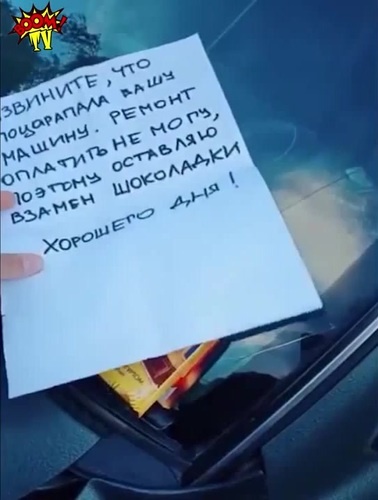 BOOM!
TV
ЗВИНИТЕ, ЧТО
ПОЦАРАПАЛА ВАШУ
МАШИНУ. РЕМОНТ
ОПЛАТИТЬ НЕ МОГУ,
ПОЭТОМУ ОСТАВЛЯЮ
ВЗАМЕН ШОКОЛАДКИ
ХОРОШЕГО ДНЯ!